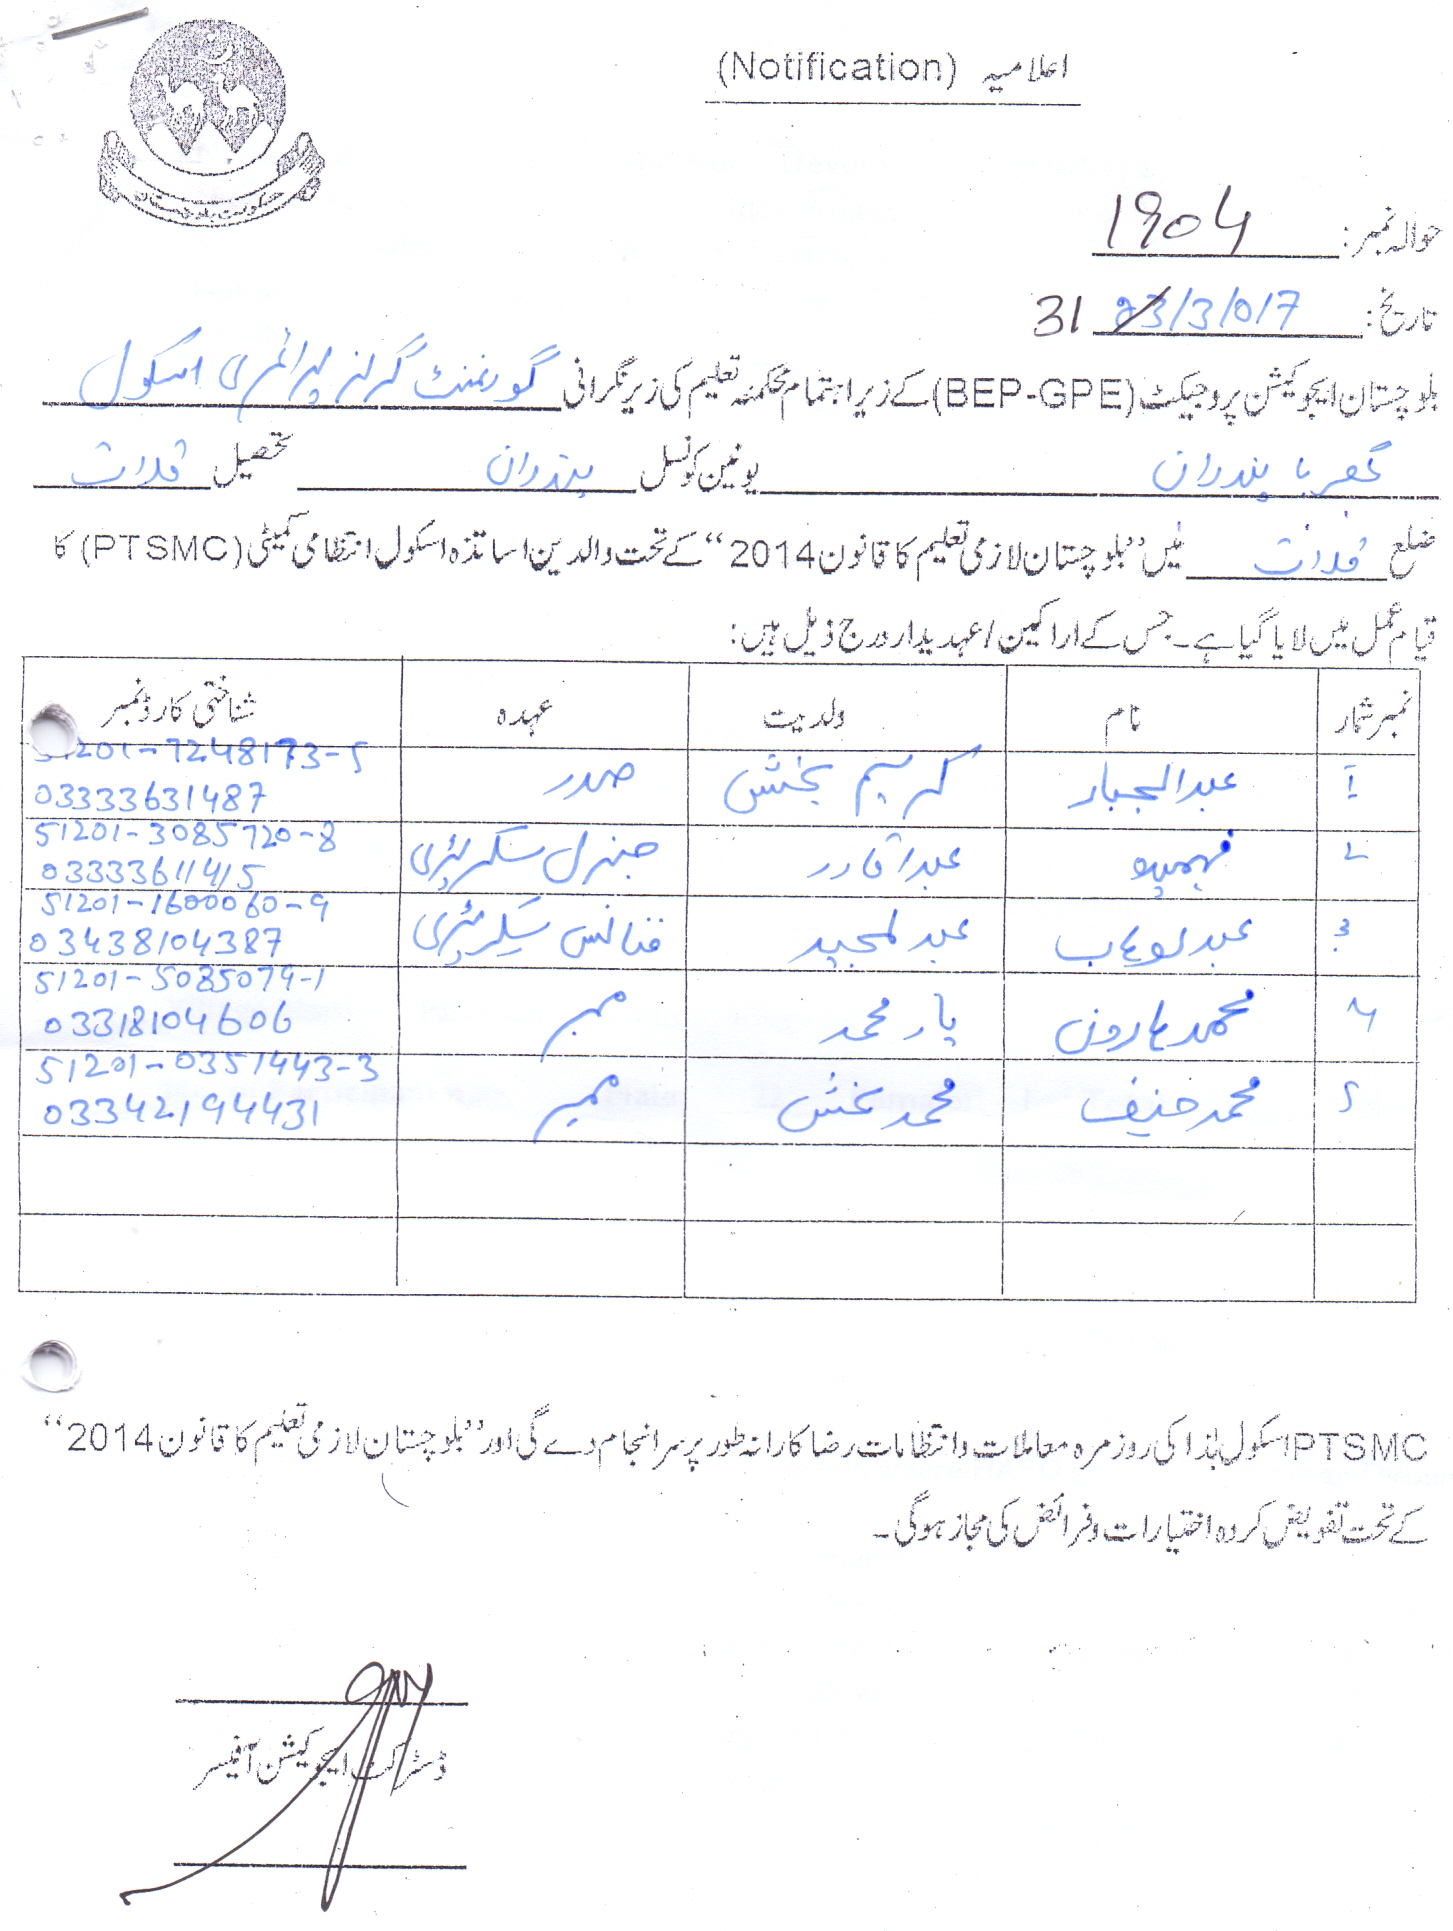 اعلامیہ (Notification)
حکومت بلوچستان
حوالہ نمبر: 1904
تاریخ: 23/3/017 31
بلوچستان ایجوکیشن پروجیکٹ (BEP-GPE) کے زیر اہتمام محکمہ تعلیم کی زیر نگرانی گورنمنٹ گرلز پرائمری اسکول
پندران یونین کونسل پندران تحصیل قلات
ضلع قلات میں ”بلوچستان لازمی تعلیم کا قانون 2014“ کے تحت والدین اساتذہ اسکول انتظامی کمیٹی (PTSMC) کا
قیام عمل میں لایا گیا ہے۔ جس کے اراکین / عہدیدار درج ذیل ہیں:
نمبر شمار نام ولدیت عہدہ شناختی کارڈ نمبر
۱ عبدالجبار کریم بخش صدر 51201-7248173-5
03333631487
۲ فہمیدہ عبدالقادر جنرل سیکریٹری 51201-3085720-8
03333611415
۳ عبدلوہاب عبدلمجید فنانس سیکریٹری 51201-1600060-9
03438104387
۴ محمد ہارون یار محمد ممبر 51201-5085079-1
03318104606
۵ محمد حنیف محمد بخش ممبر 51201-0351443-3
03342194431
PTSMC اسکول ہٰذا کی روزمرہ معاملات و انتظامات رضاکارانہ طور پر سرانجام دے گی اور ”بلوچستان لازمی تعلیم کا قانون 2014“
کے تحت تفویض کردہ اختیارات و فرائض کی مجاز ہوگی۔
ڈسٹرکٹ ایجوکیشن آفیسر